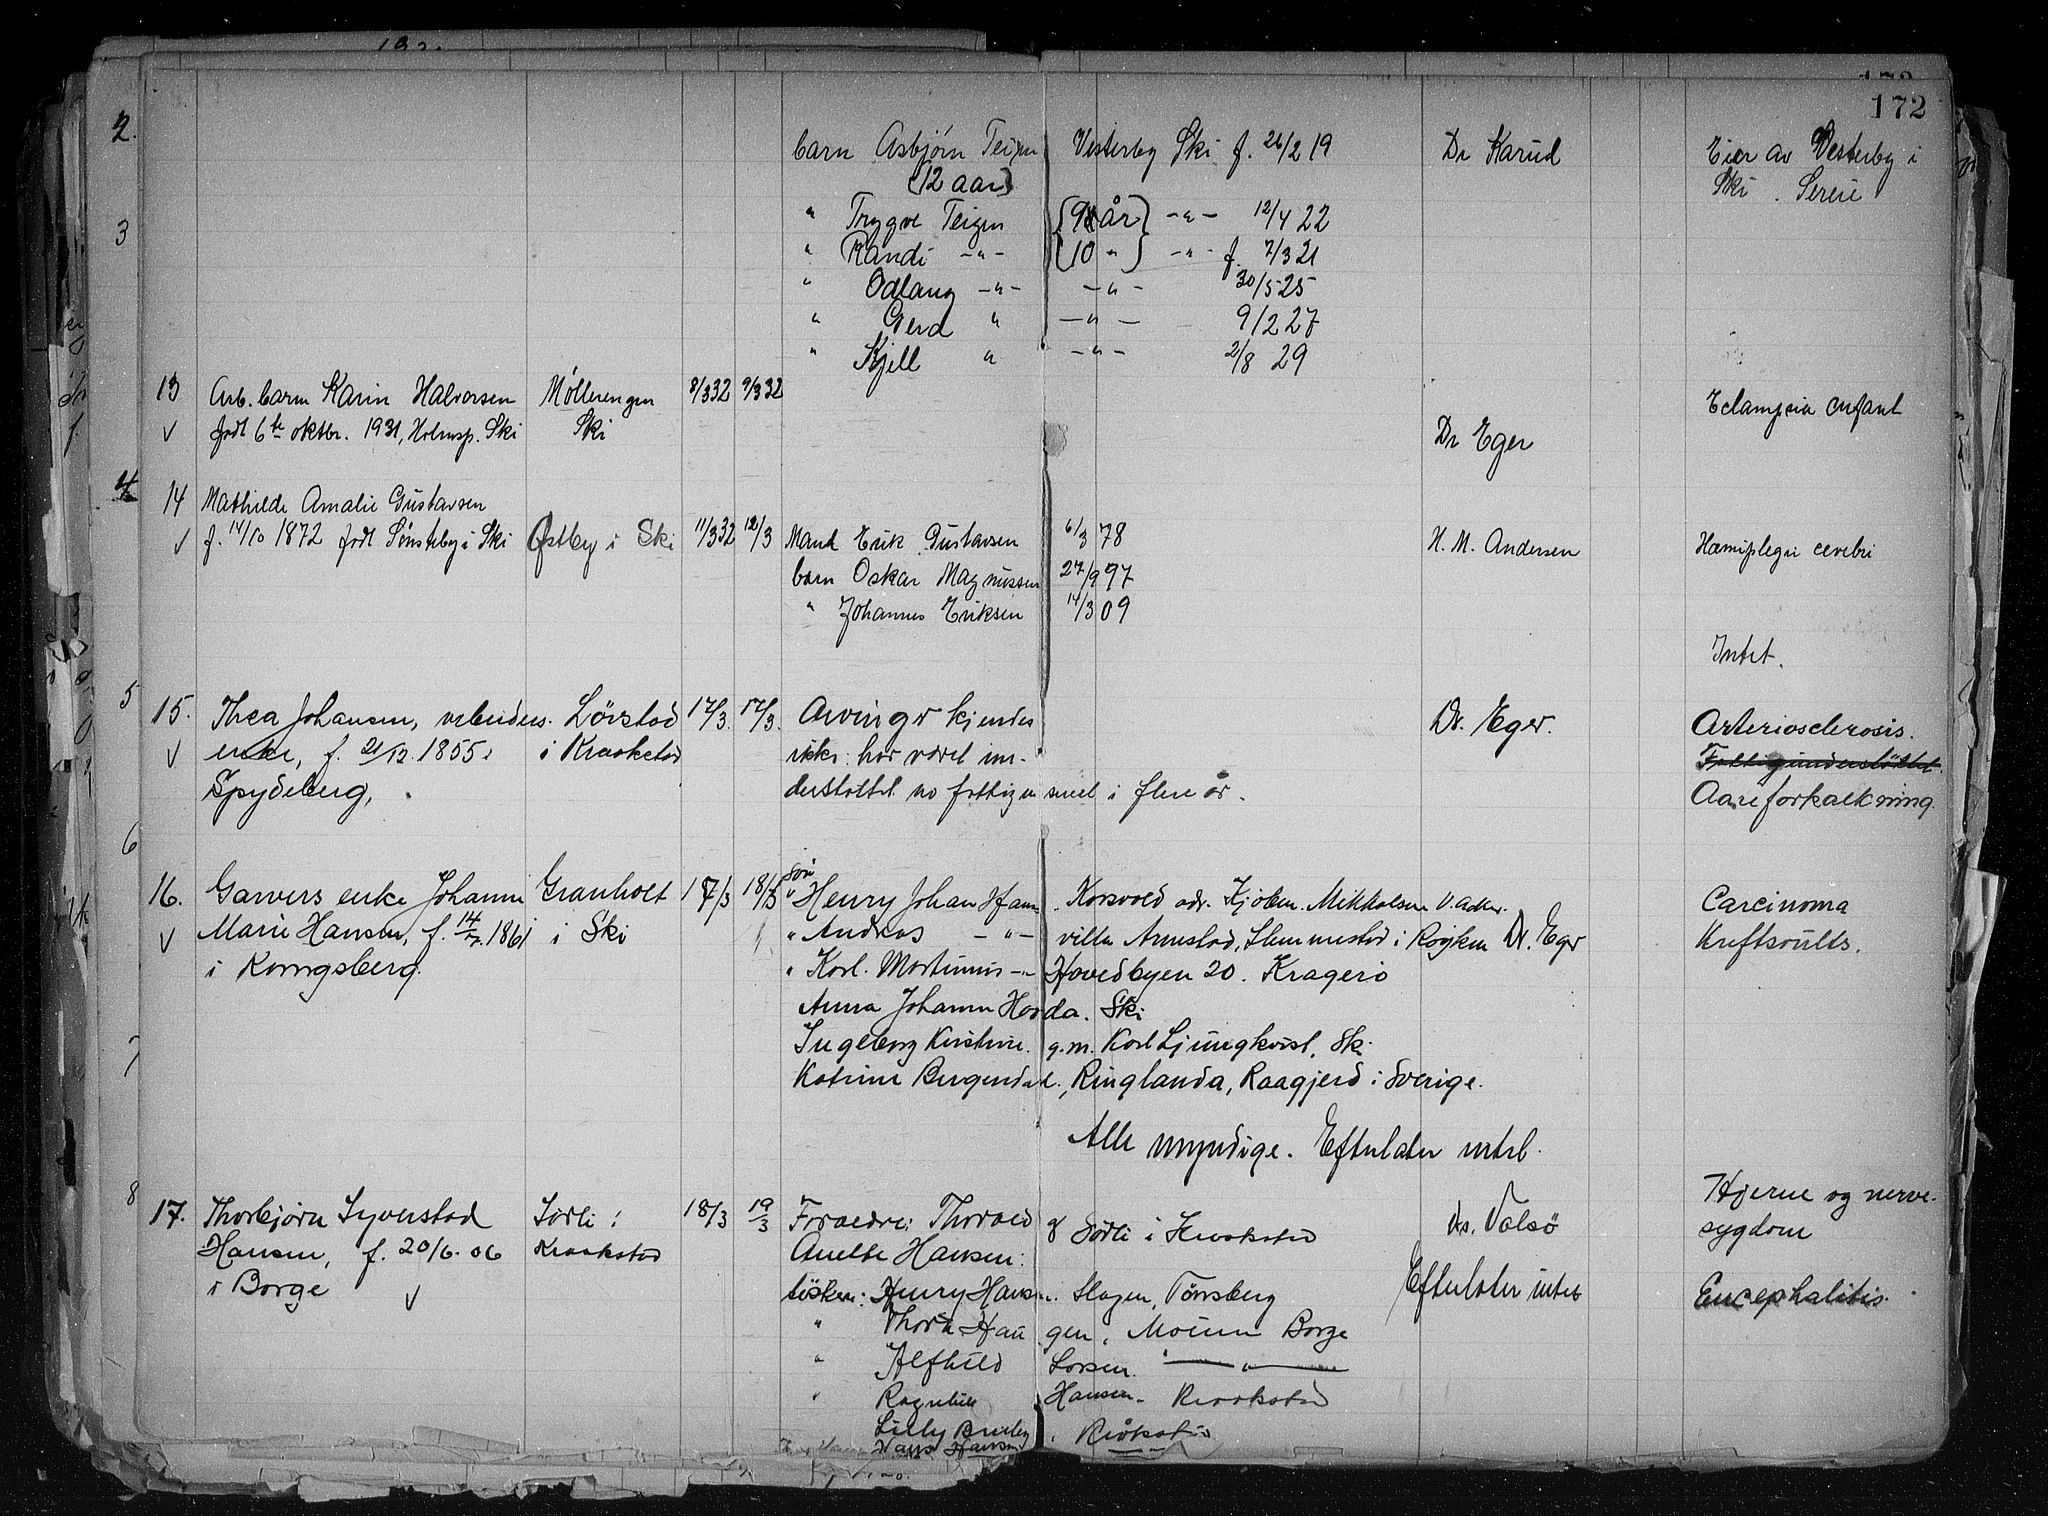 172
barn Asbjørn Teigen Vesterby Ski f. 26/2 19 Dr Karud Eier av Vesterby i
(12 aar) Ski.
" Trygve Teigen {9 år} -"- 12/4 22
" Randi -"- {10 "} -"- f. 7/3 21
" Odlaug -"- -"- 30/5 25
" Gerd " -"- 9/2 27
" Kjell " -"- 2/8 29
13 Arb. barn Karin Halvorsen Møllerengen 8/3 32 9/3 32 Eclampsia infant
√ født 6te oktbr. 1931, Holmsp. Ski Ski Dr Eger
14 Mathilde Amalie Gustavsen
√ f. 14/10 1872 født Sønsteby i Ski Østby i Ski 11/3 32 12/3 Mand Erik Gustavsen 6/3 78 H. M. Andersen Hæmiplegi cerebri
barn Oskar Magnussen 27/9 97
" Johannes Eriksen 14/3 09
Intet.
15. Thea Johansen, arbeiders. Løvstad 17/3. 17/3. Arvinger kjendes Dr. Eger. Arteriosclerosis.
√ enke, f. 21/12. 1855 i Kraakstad ikke: har været un- Fattigunderstøttet.
Spydeberg, derstøttet av fattigvesenet i flere år. Aareforkalkning.
16. Garvers enke Johanne Granholt 17/3 18/3 Søn " Henry Johan Hansen. Korsvold adr. Kjøbm. Mikkelsen Carcinoma
√ Marie Hansen, f. 14/7. 1861 i Ski " Andreas -"- villa Arnestad, Slemmestad i Røyken Dr. Eger Kreftsvulst.
i Kongsberg. " Karl Martinius -"- Hovedbyen 20. Kragerø
Anna Johanne Hovda. Ski
Ingeborg Kristine. g.m. Karl Ljungkvist, Ski
Katrine Bergendal, Ringlanda, Raagjerd i Sverige.
Alle myndige. Efterlater intet.
17. Thorbjørn Syverstad Sørli i 18/3 19/3 Forældre: Thorvald & Sørli i Kraakstad Ds. Valsø Hjerne og nerve-
Hansen, f. 20/6. 06 Kraakstad Anette Hansen: sygdom
i Borge √ søsken: Henry Hansen. Slagen, Tønsberg Efterlater intet Encephalitis.
" Thora Haugen, Moum Borge
" Alfhild Larsen. -"-
" Ragnhild Hansen. Kraakstad
Lilly Bruby. Kråkstad
Hans Hansen